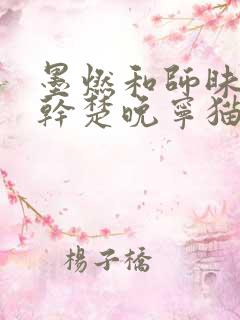 墨燃和師昧
幹楚晚寧猫
楊子橋